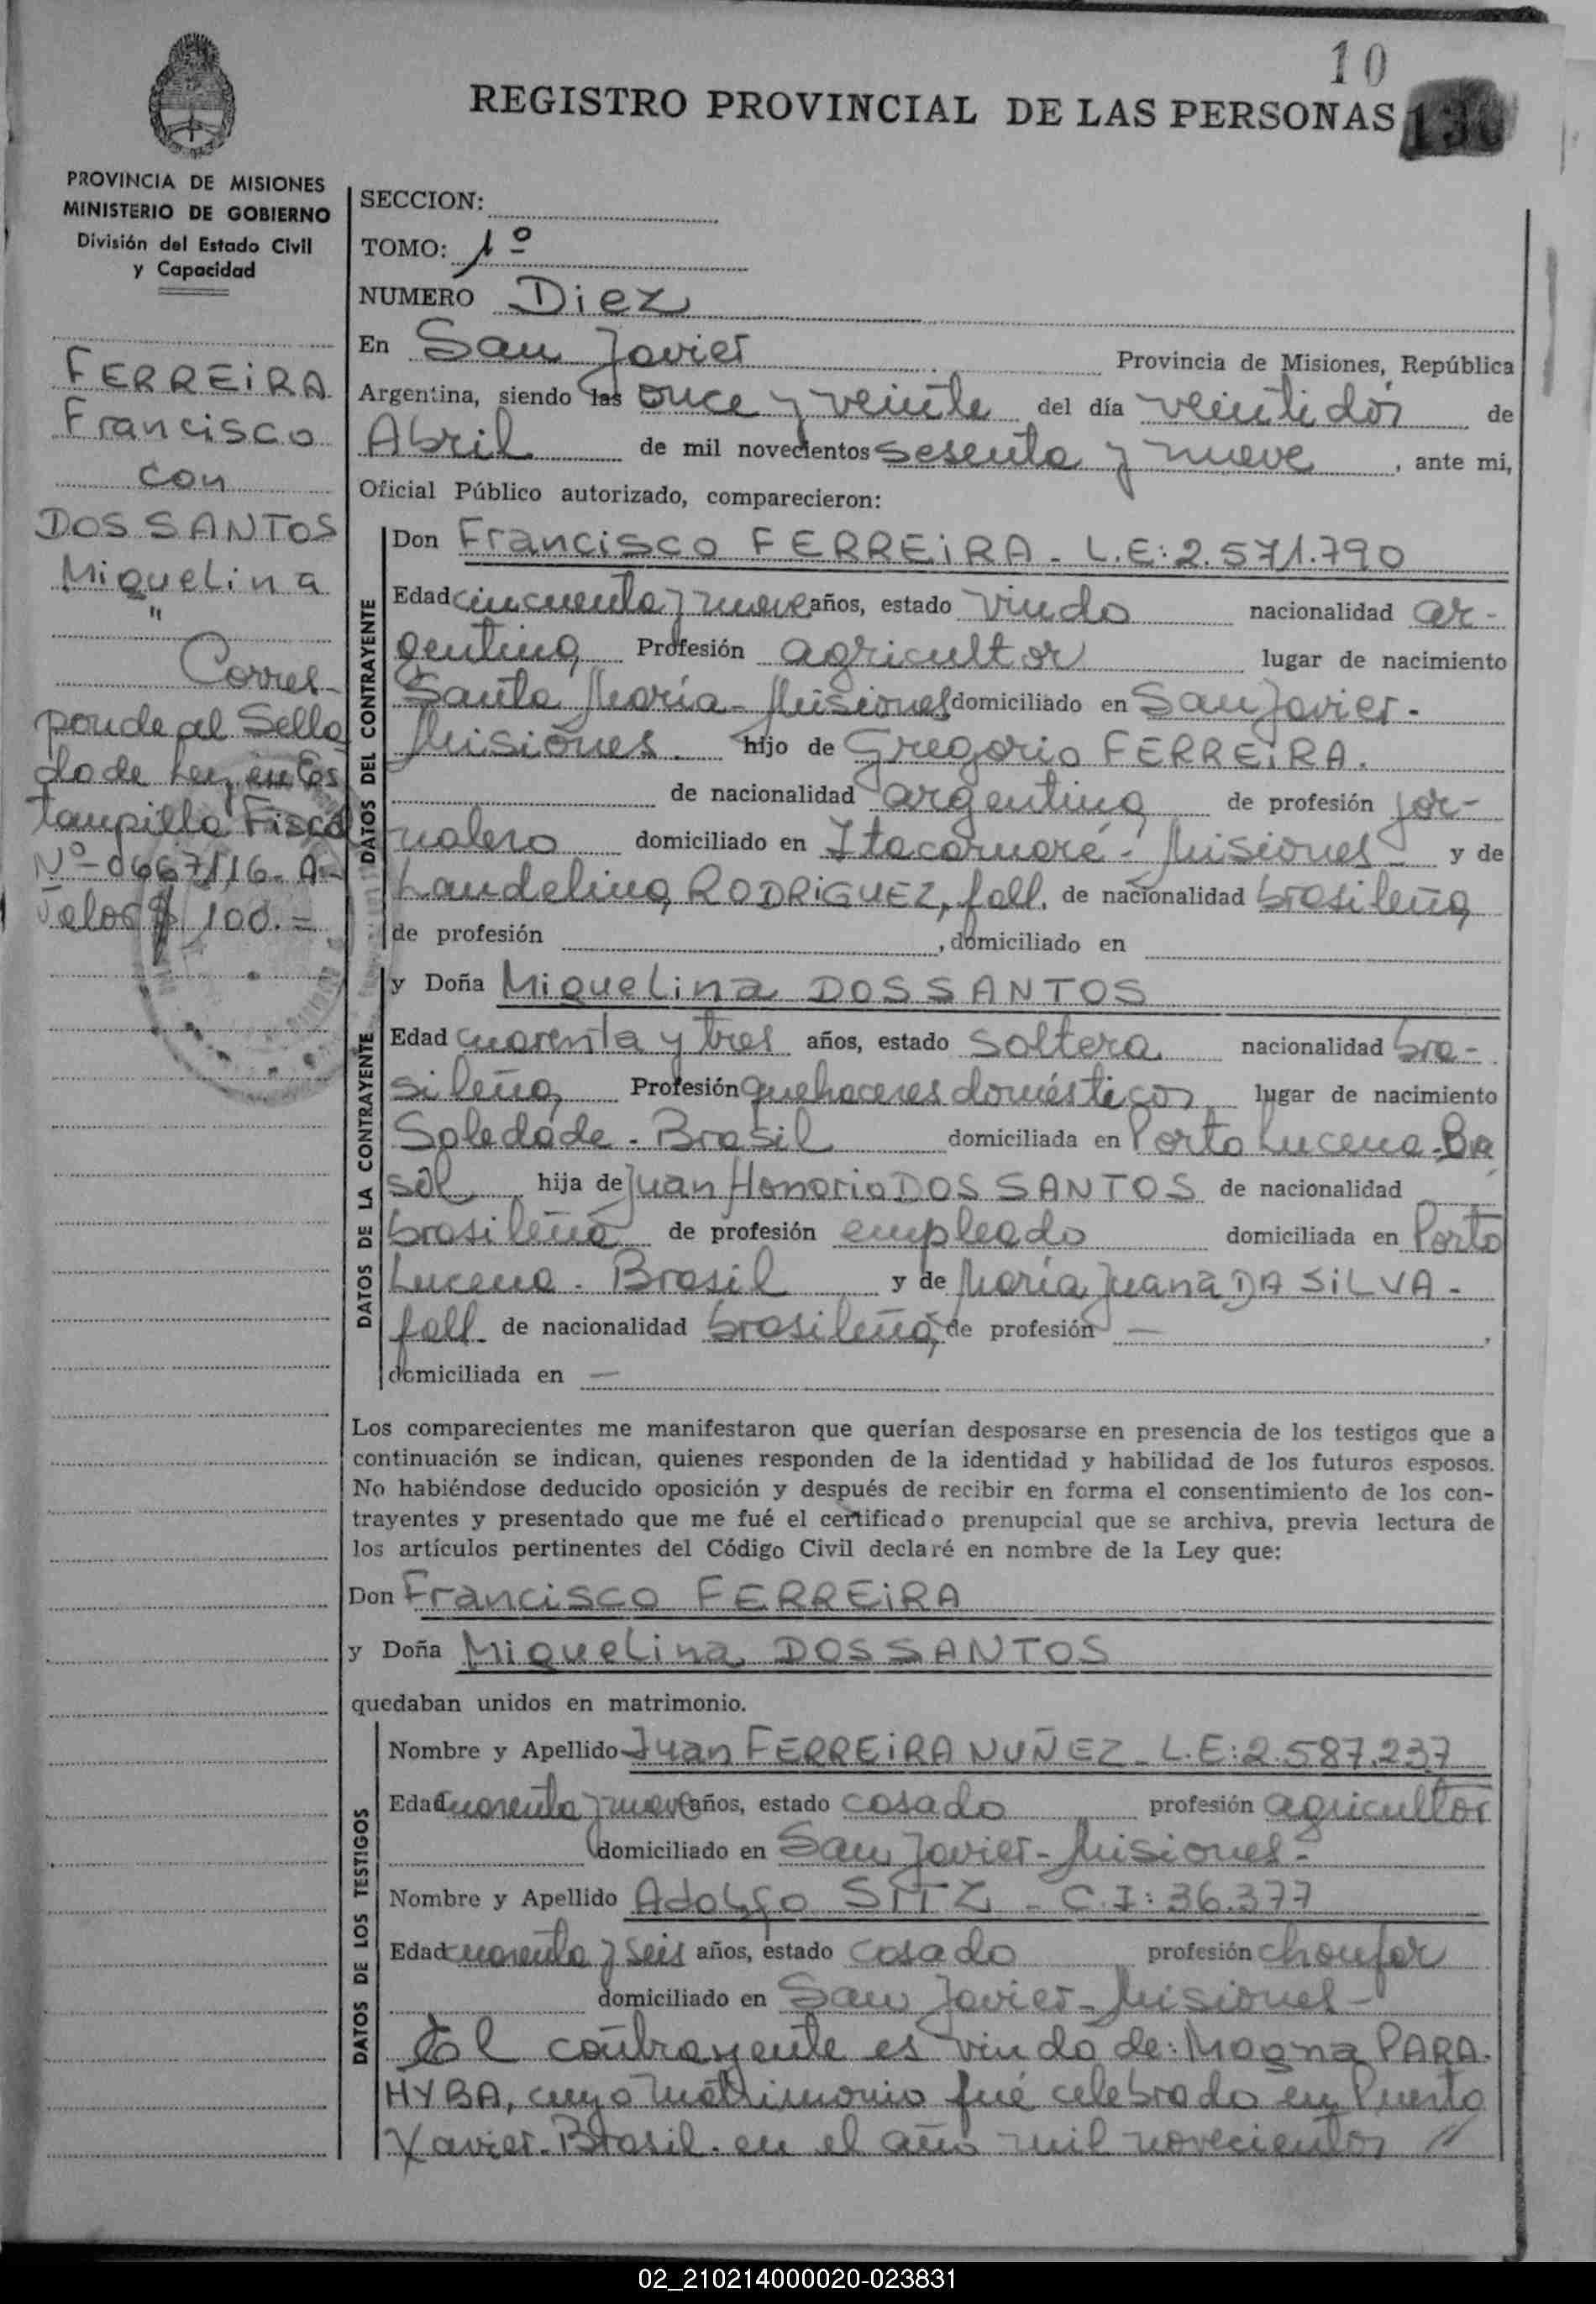 10
REGISTRO PROVINCIAL DE LAS PERSONAS 130
PROVINCIA DE MISIONES
MINISTERIO DE GOBIERNO
División del Estado Civil
y Capacidad
FERREIRA
Francisco
con
DOS SANTOS
Miquelina
"
Corres-
ponde al Sella
do de Ley en Es
tampilla Fiscal
Nº 0667116. A-
Valor $ 100.=
SECCION:
TOMO: 1º
NUMERO Diez
En San Javier Provincia de Misiones, República
Argentina, siendo las once y veinte del día veintidós de
Abril de mil novecientos sesenta y nueve, ante mi,
Oficial Público autorizado, comparecieron:
DATOS DEL CONTRAYENTE
Don Francisco FERREIRA - L.E: 2.571.790
Edad cincuenta y nueve años, estado viudo nacionalidad ar-
gentina Profesión agricultor lugar de nacimiento
Santa María - Misiones domiciliado en San Javier -
Misiones. hijo de Gregorio FERREIRA.
de nacionalidad argentina de profesión jor-
nalero domiciliado en Itacaruaré - Misiones - y de
Landelina RODRIGUEZ, fall. de nacionalidad brasileña
de profesión , domiciliado en
DATOS DE LA CONTRAYENTE
y Doña Miquelina DOS SANTOS
Edad cuarenta y tres años, estado soltera nacionalidad bra-
sileña Profesión quehaceres domésticos lugar de nacimiento
Soledade - Brasil domiciliada en Porto Lucena - Bra
sil hija de Juan Honorio DOS SANTOS de nacionalidad
brasileña de profesión empleado domiciliada en Porto
Lucena - Brasil y de María Juana DA SILVA -
fall. de nacionalidad brasileña, de profesión — ,
domiciliada en —
Los comparecientes me manifestaron que querían desposarse en presencia de los testigos que a
continuación se indican, quienes responden de la identidad y habilidad de los futuros esposos.
No habiéndose deducido oposición y después de recibir en forma el consentimiento de los con-
trayentes y presentado que me fué el certificado prenupcial que se archiva, previa lectura de
los artículos pertinentes del Código Civil declaré en nombre de la Ley que:
Don Francisco FERREIRA
y Doña Miquelina DOS SANTOS
quedaban unidos en matrimonio.
DATOS DE LOS TESTIGOS
Nombre y Apellido Juan FERREIRA NUÑEZ - L.E: 2.587.237
Edad cuarenta y nueve años, estado casado profesión agricultor
domiciliado en San Javier - Misiones -
Nombre y Apellido Adolfo SITZ - C.I: 36.377
Edad cuarenta y seis años, estado casado profesión choufer
domiciliado en San Javier - Misiones -
El contrayente es viudo de: Magna PARA-
HYBA, cuyo matrimonio fué celebrado en Puerto
Xavier - Brasil. en el año mil novecientos //
02_210214000020-023831